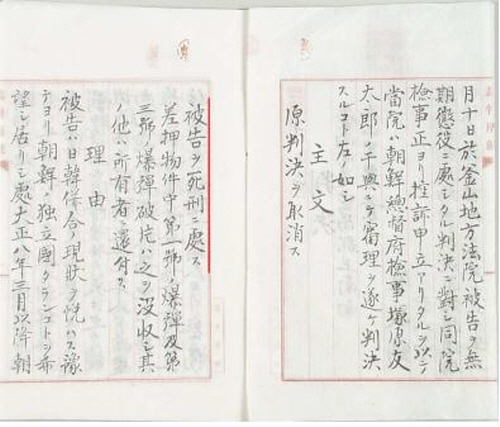 月十日於釜山地方法院被告ヲ無
期懲役ニ處シタル判決ニ對シ同院
檢事正ヨリ控訴申立アリタルヲ以テ
當院ハ朝鮮總督府檢事塚原友
太郎ノ干與ニテ審理ヲ遂ケ判決
スルコト左ノ如シ
主文
原判決ヲ取消ス
被告ヲ死刑ニ處ス
差押物件中第一號ノ爆彈及第
三號ノ爆彈破片ハ之ヲ沒收シ其
ノ他ハ所有者ニ還付ス
理由
被告ハ日韓併合ノ現狀ヲ悅ハス豫
テヨリ朝鮮ノ獨立國タランコトヲ希
望シ居リシ處大正八年三月以降朝